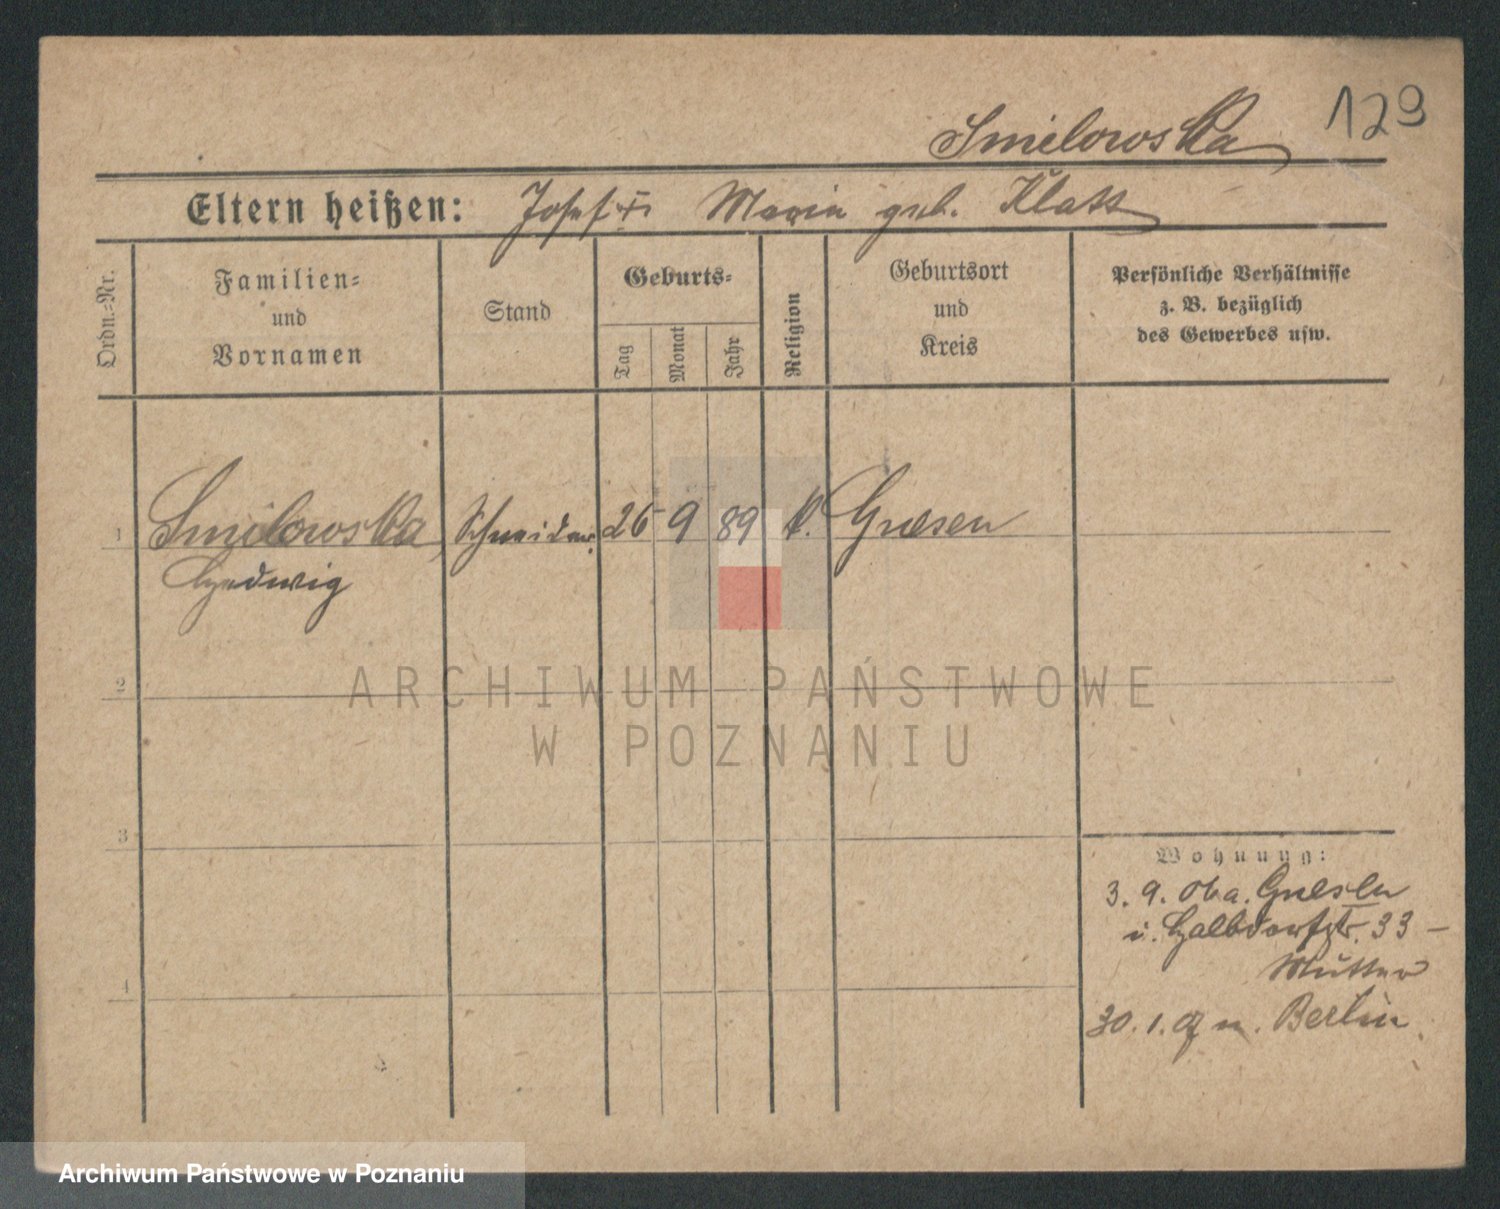 129
Smilowska
Eltern heißen: Josef + Maria geb. Klatt
Ordn.-Nr.
Familien-
und
Vornamen
Stand
Geburts-
Tag
Monat
Jahr
Religion
Geburtsort
und
Kreis
Persönliche Verhältnisse
z. B. bezüglich
des Gewerbes usw.
1 Smilowska, Schneider. 26 9 89 k. Gnesen
Hedwig
2
3
4
Wohnung:
3. 9. 06 a. Gnesen
i. Halbdorfstr. 33 –
Mutter
30. 1. 07 n. Berlin.
ARCHIWUM PAŃSTWOWE
W POZNANIU
Archiwum Państwowe w Poznaniu